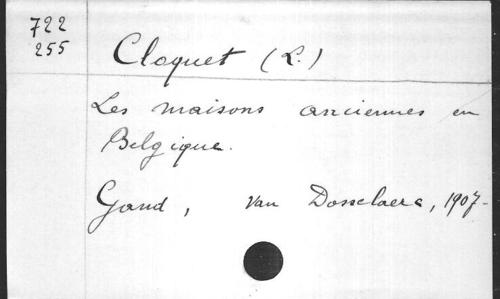 722
255
Cloquet (L.)
Les maisons anciennes en
Belgique.
Gand, Van Dosselaere, 1907-